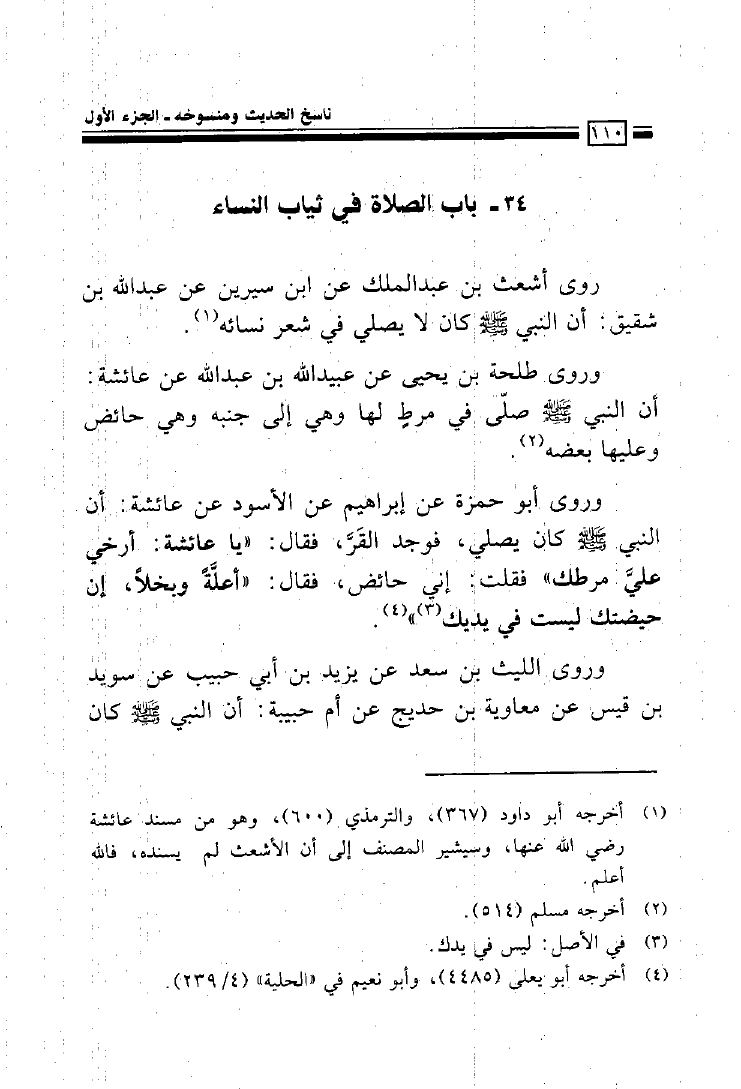 ناسخ الحديث ومنسوخه ـ الجزء الأول
١١٠
٣٤ ـ باب الصلاة في ثياب النساء
روى أشعث بن عبدالملك عن ابن سيرين عن عبدالله بن
شقيق: أن النبي ﷺ كان لا يصلي في شعر نسائه(١).
وروى طلحة بن يحيى عن عبيدالله بن عبدالله عن عائشة:
أن النبي ﷺ صلّى في مرطٍ لها وهي إلى جنبه وهي حائض
وعليها بعضه(٢).
وروى أبو حمزة عن إبراهيم عن الأسود عن عائشة: أن
النبي ﷺ كان يصلي، فوجد القَرَّ، فقال: «يا عائشة: أرخي
عليَّ مرطك» فقلت: إني حائض، فقال: «أعلَّةً وبخلاً، إن
حيضتك ليست في يديك(٣)»(٤).
وروى الليث بن سعد عن يزيد بن أبي حبيب عن سويد
بن قيس عن معاوية بن حديج عن أم حبيبة: أن النبي ﷺ كان
(١) أخرجه أبو داود (٣٦٧)، والترمذي (٦٠٠)، وهو من مسند عائشة
رضي الله عنها، وسيشير المصنف إلى أن الأشعث لم يسنده، فالله
أعلم.
(٢) أخرجه مسلم (٥١٤).
(٣) في الأصل: ليس في يدك.
(٤) أخرجه أبو يعلى (٤٤٨٥)، وأبو نعيم في «الحلية» (٢٣٩/٤).